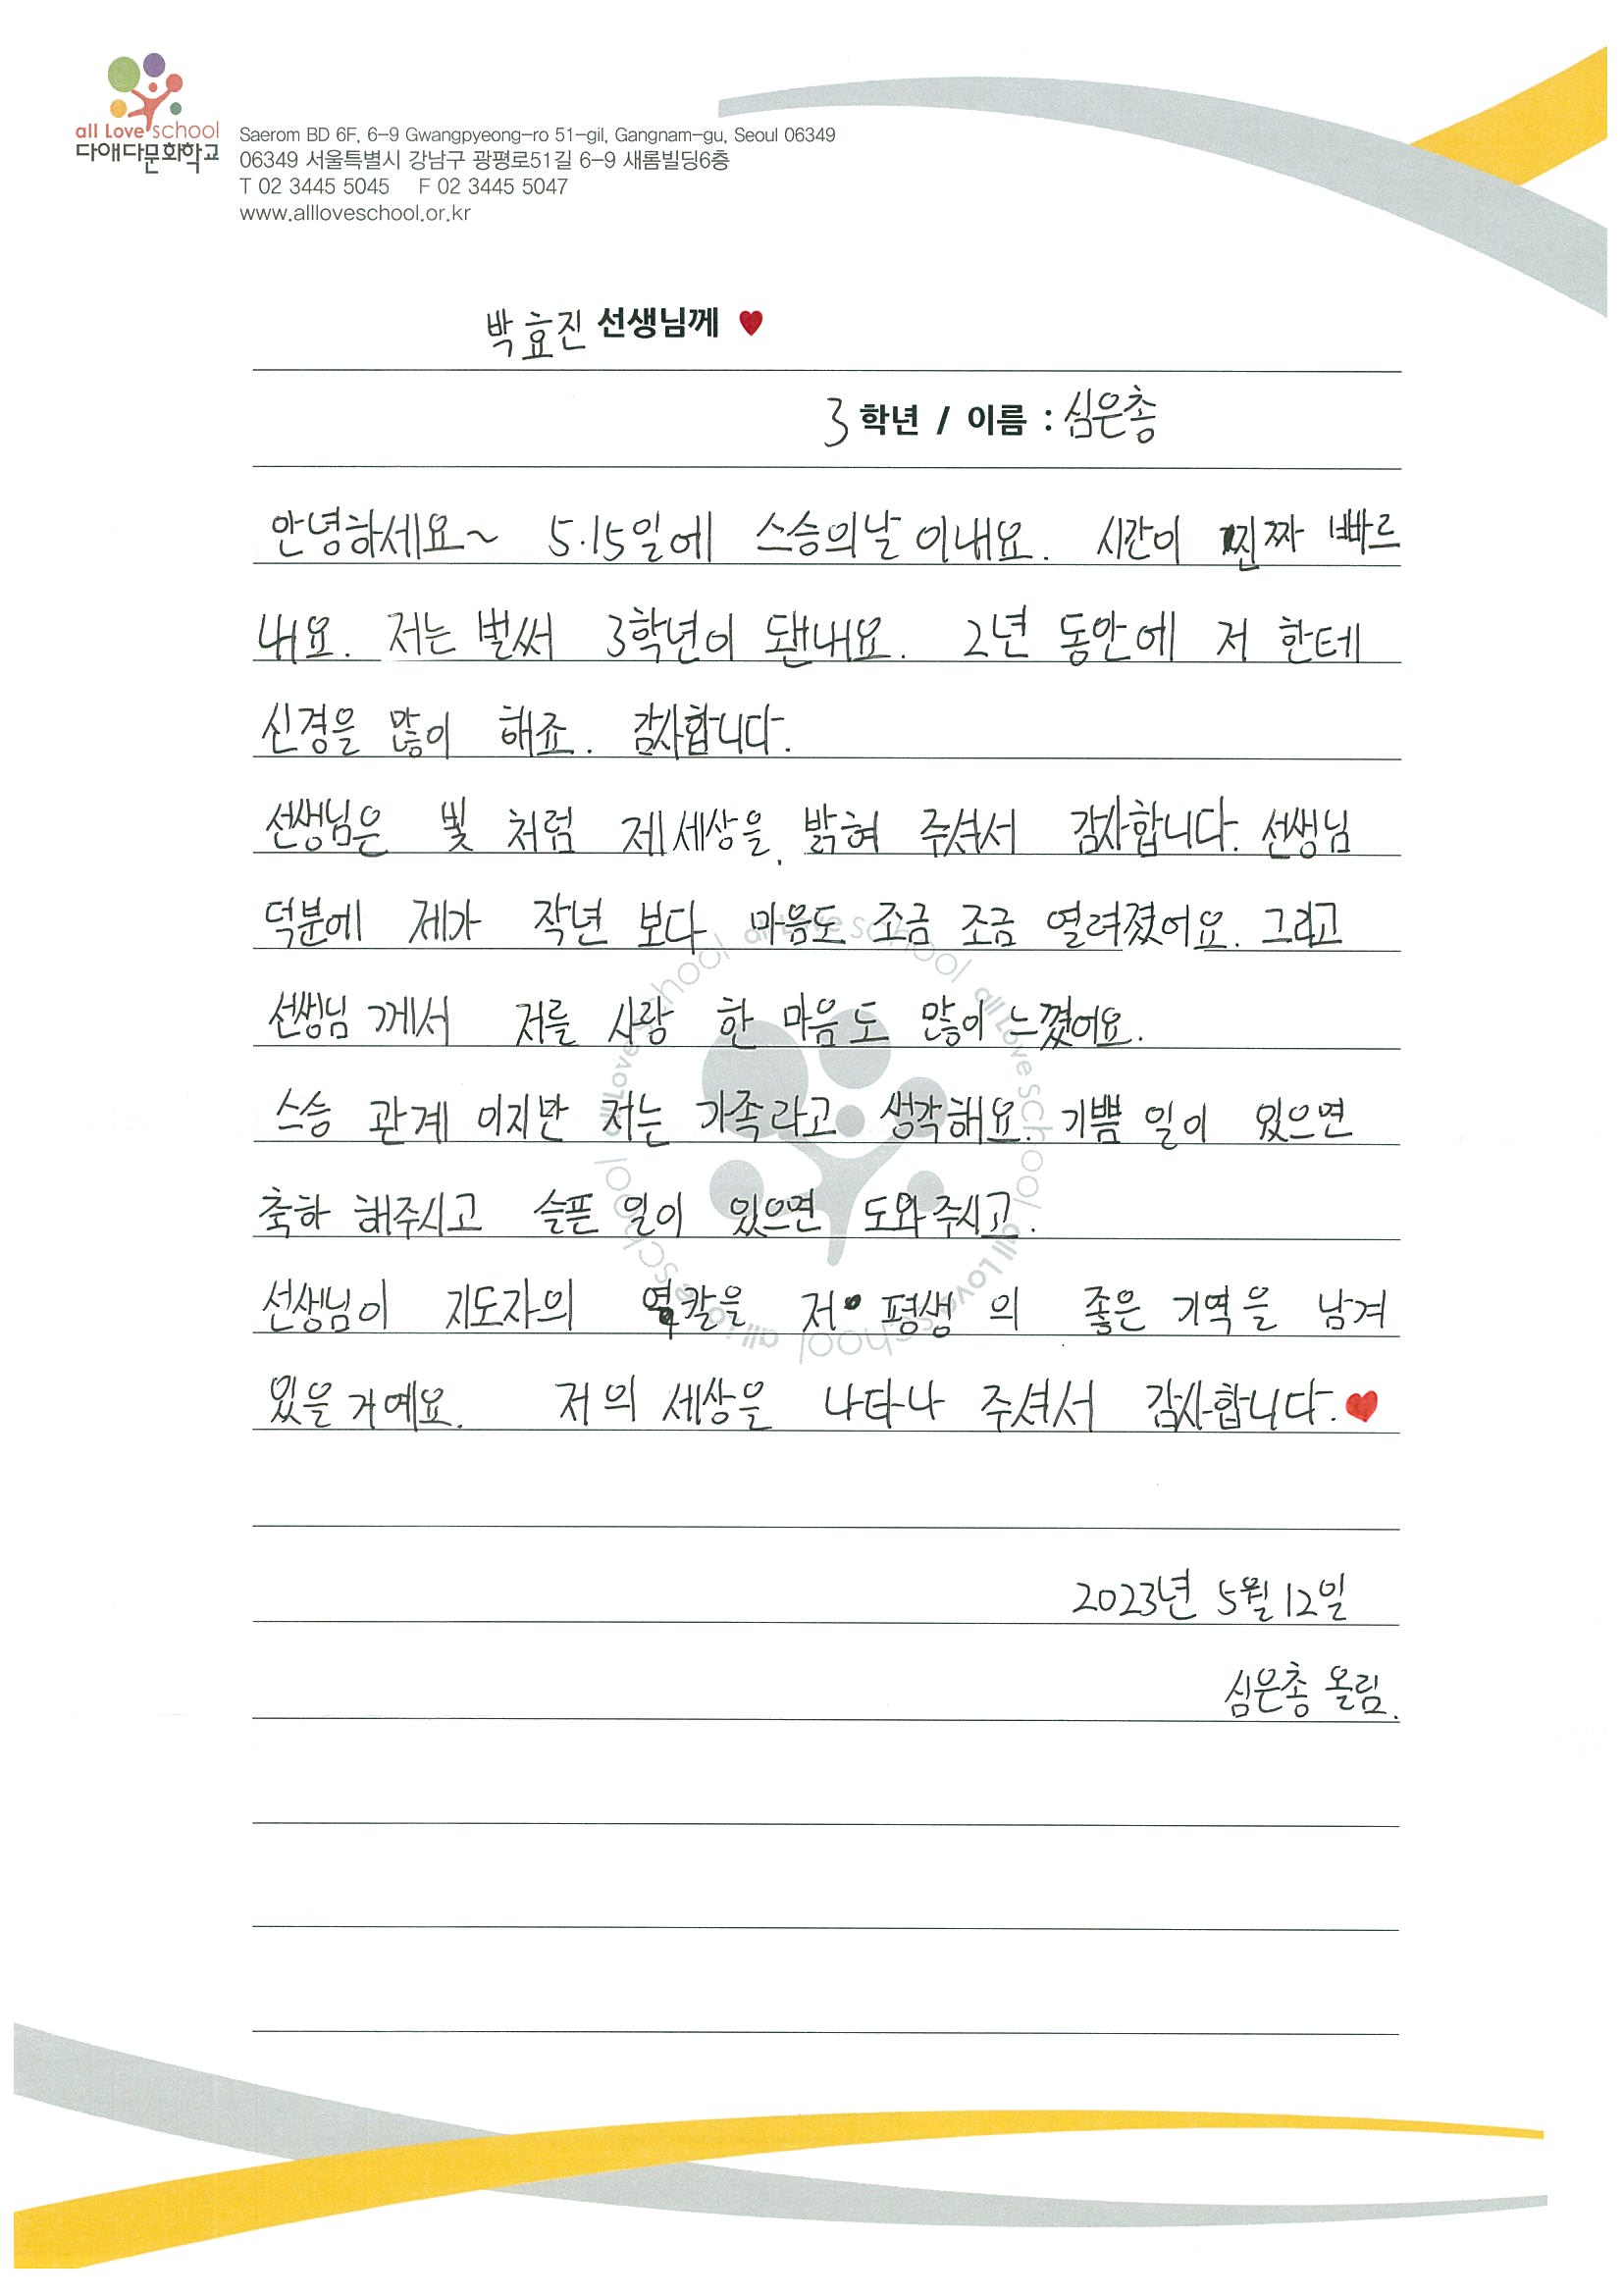 all Love school
다애다문화학교
Saerom BD 6F, 6-9 Gwangpyeong-ro 51-gil, Gangnam-gu, Seoul 06349
06349 서울특별시 강남구 광평로51길 6-9 새롬빌딩6층
T 02 3445 5045 F 02 3445 5047
www.allloveschool.or.kr
박효진 선생님께 ♥
3 학년 / 이름 : 심은총
안녕하세요~ 5.15일에 스승의날 이내요. 시간이 찐짜 빠르
내요. 저는 벌써 3학년이 됀내요. 2년 동안에 저 한테
신경을 많이 해죠. 감사합니다.
선생님은 빛 처럼 제 세상을 밝혀 주셔서 감사합니다. 선생님
덕분에 제가 작년 보다 마음도 조금 조금 열려졌어요. 그리고
선생님 께서 저를 사랑 한 마음도 많이 느꼈어요.
스승 관계 이지만 저는 가족라고 생각해요. 기쁨 일이 있으면
축하 해주시고 슬픈 일이 있으면 도와주시고.
선생님이 지도자의 역칼을 저 평생 의 좋은 기역을 남겨
있을 거예요. 저의 세상을 나타나 주셔서 감사합니다. ♥
2023년 5월 12일
심은총 올림.
all Love school all Love school all Love school all Love school